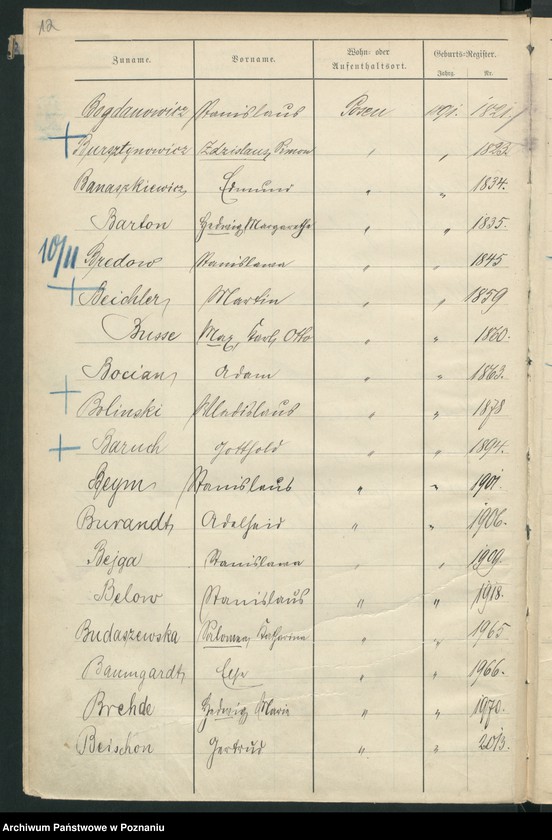 12
Zuname. Vorname. Wohn- oder Aufenthaltsort. Geburts-Register.
Jahrg. Nr.
Bogdanowicz Stanislaus Posen 1821
Bursztynowicz Zdzislaus 1823.
Banaszkiewicz Edmund " " 1834.
Barton Hedwig Margarethe " " 1835.
10/11 Bredow Stanislawa " " 1845
Beichler Martin " " 1859
Busse Max, Karl, Otto " " 1860.
Bocian Adam " " 1863.
Bolinski Wladislaus " " 1878
Baruch Gotthold " " 1894.
Beym Stanislaus " " 1901.
Burandt Adelheid " " 1906.
Bejga Stanislawa " " 1909.
Below Stanislaus " " 1918.
Budaszewska Salomea, Katharina " " 1965
Baumgardt Else " " 1966.
Brehde Hedwig Marie " " 1970.
Beischon Gertrud " " 2013.
Archiwum Państwowe w Poznaniu